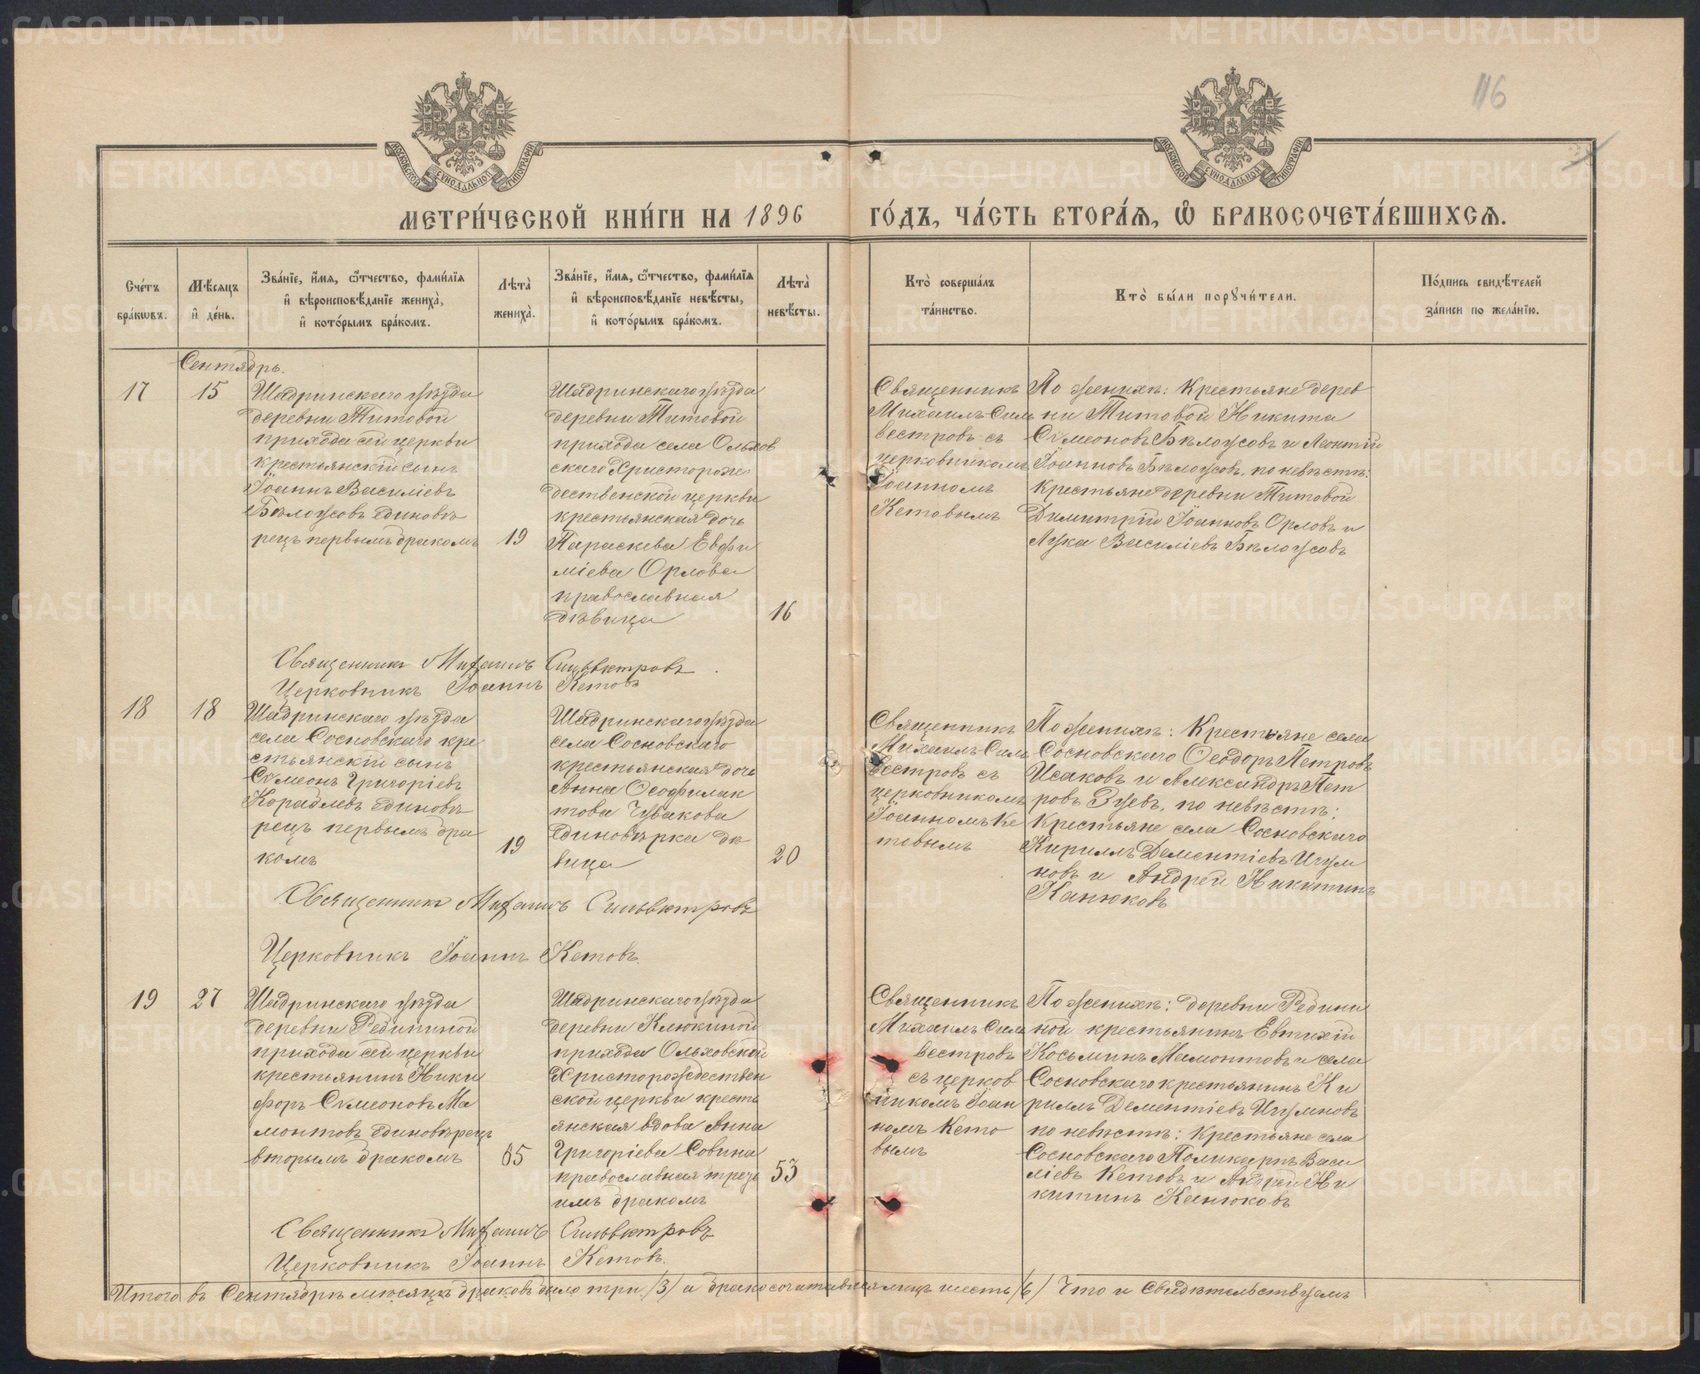 116
МОСКОВСКОЙ СУНОДАЛЬНОЙ ТИПОГРАФІИ
МОСКОВСКОЙ СУНОДАЛЬНОЙ ТИПОГРАФІИ
МЕТРИ́ЧЕСКОЙ КНИ́ГИ НА 1896 ГО́ДЪ, ЧА́СТЬ ВТОРА́Я, Ѿ БРАКОСОЧЕТА́ВШИХСЯ.
Сче́тъ бра́кѡвъ.
Мѣ́сяцъ и҆ де́нь.
Зва́нїе, и҆́мя, ѻ҆́тчество, фами́лїя
и҆ вѣроисповѣ́данїе жениха̀,
и҆ кото́рымъ бра́комъ.
Лѣ́та жениха̀.
Зва́нїе, и҆́мя, ѻ҆́тчество, фами́лїя
и҆ вѣроисповѣ́данїе невѣ́сты,
и҆ кото́рымъ бра́комъ.
Лѣ́та невѣ́сты.
Кто̀ соверша́лъ
та́инство.
Кто̀ бы́ли порꙋчи́тели.
По́дпись свидѣ́телей
за́писи по жела́нїю.
Сентябрь.
17
15
Шадринскаго уѣзда
деревни Титовой
прихода сей церкви
крестьянскій сынъ
Іоаннъ Василіевъ
Бѣлоусовъ единовѣ
рецъ первымъ бракомъ
19
Шадринскаго уѣзда
деревни Титовой
прихода села Ольхов
скаго Христорож
дественской церкви
крестьянская дочь
Параскева Евфи
міева Орлова
православная
дѣвица
16
Священникъ
Михаилъ Силь
вестровъ съ
церковникомъ
Іоанномъ
Кетовымъ
По женихѣ: Крестьяне дерев
ни Титовой Никита
Сѵмеоновъ Бѣлоусовъ и Леонтій
Іоанновъ Бѣлоусовъ, по невѣстѣ:
Крестьяне деревни Титовой
Димитрій Іоанновъ Орловъ и
Лука Василіевъ Бѣлоусовъ
Священникъ Михаилъ Сильвестровъ.
Церковникъ Іоаннъ Кетовъ
18
18
Шадринскаго уѣзда
села Сосновскаго кре
стьянскій сынъ
Сѵмеонъ Григоріевъ
Кораблевъ единовѣ
рецъ первымъ бра
комъ
19
Шадринскаго уѣзда
села Сосновскаго
крестьянская дочь
Анна Ѳеофилак
това Чувакова
единовѣрка дѣ
вица
20
Священникъ
Михаилъ Силь
вестровъ съ
церковникомъ
Іоанномъ Ке
товымъ
По женихѣ: Крестьяне села
Сосновскаго Ѳеодоръ Петровъ
Исаковъ и Александръ Пет
ровъ Зуевъ, по невѣстѣ:
Крестьяне села Сосновскаго
Кириллъ Дементіевъ Игум
новъ и Андрей Никитинъ
Канюковъ
Священникъ Михаилъ Сильвестровъ
Церковникъ Іоаннъ Кетовъ.
19
27
Шадринскаго уѣзда
деревни Редининой
прихода сей церкви
крестьянинъ Ники
форъ Сѵмеоновъ Ма
монтовъ единовѣрецъ
вторымъ бракомъ
65
Шадринскаго уѣзда
деревни Клюкиной
прихода Ольховской
Христорождествен
ской церкви кресть
янская вдова Анна
Григоріева Совина
православная треть
имъ бракомъ
53
Священникъ
Михаилъ Силь
вестровъ
съ церков
никомъ Іоан
номъ Кето
вымъ
По женихѣ: деревни Редини
ной крестьянинъ Евтихій
Косьминъ Мамонтовъ и села
Сосновскаго крестьянинъ Ки
риллъ Дементіевъ Игумновъ
по невѣстѣ: Крестьяне села
Сосновскаго Поликарпъ Васи
ліевъ Кетовъ и Андрей Ни
китинъ Канюковъ
Священникъ Михаилъ Сильвестровъ
Церковникъ Іоаннъ Кетовъ.
Итого въ Сентябрѣ мѣсяцѣ браковъ было три /3/ а бракосочетавшихся лицъ шесть /6/ Что и свидѣтельствуемъ